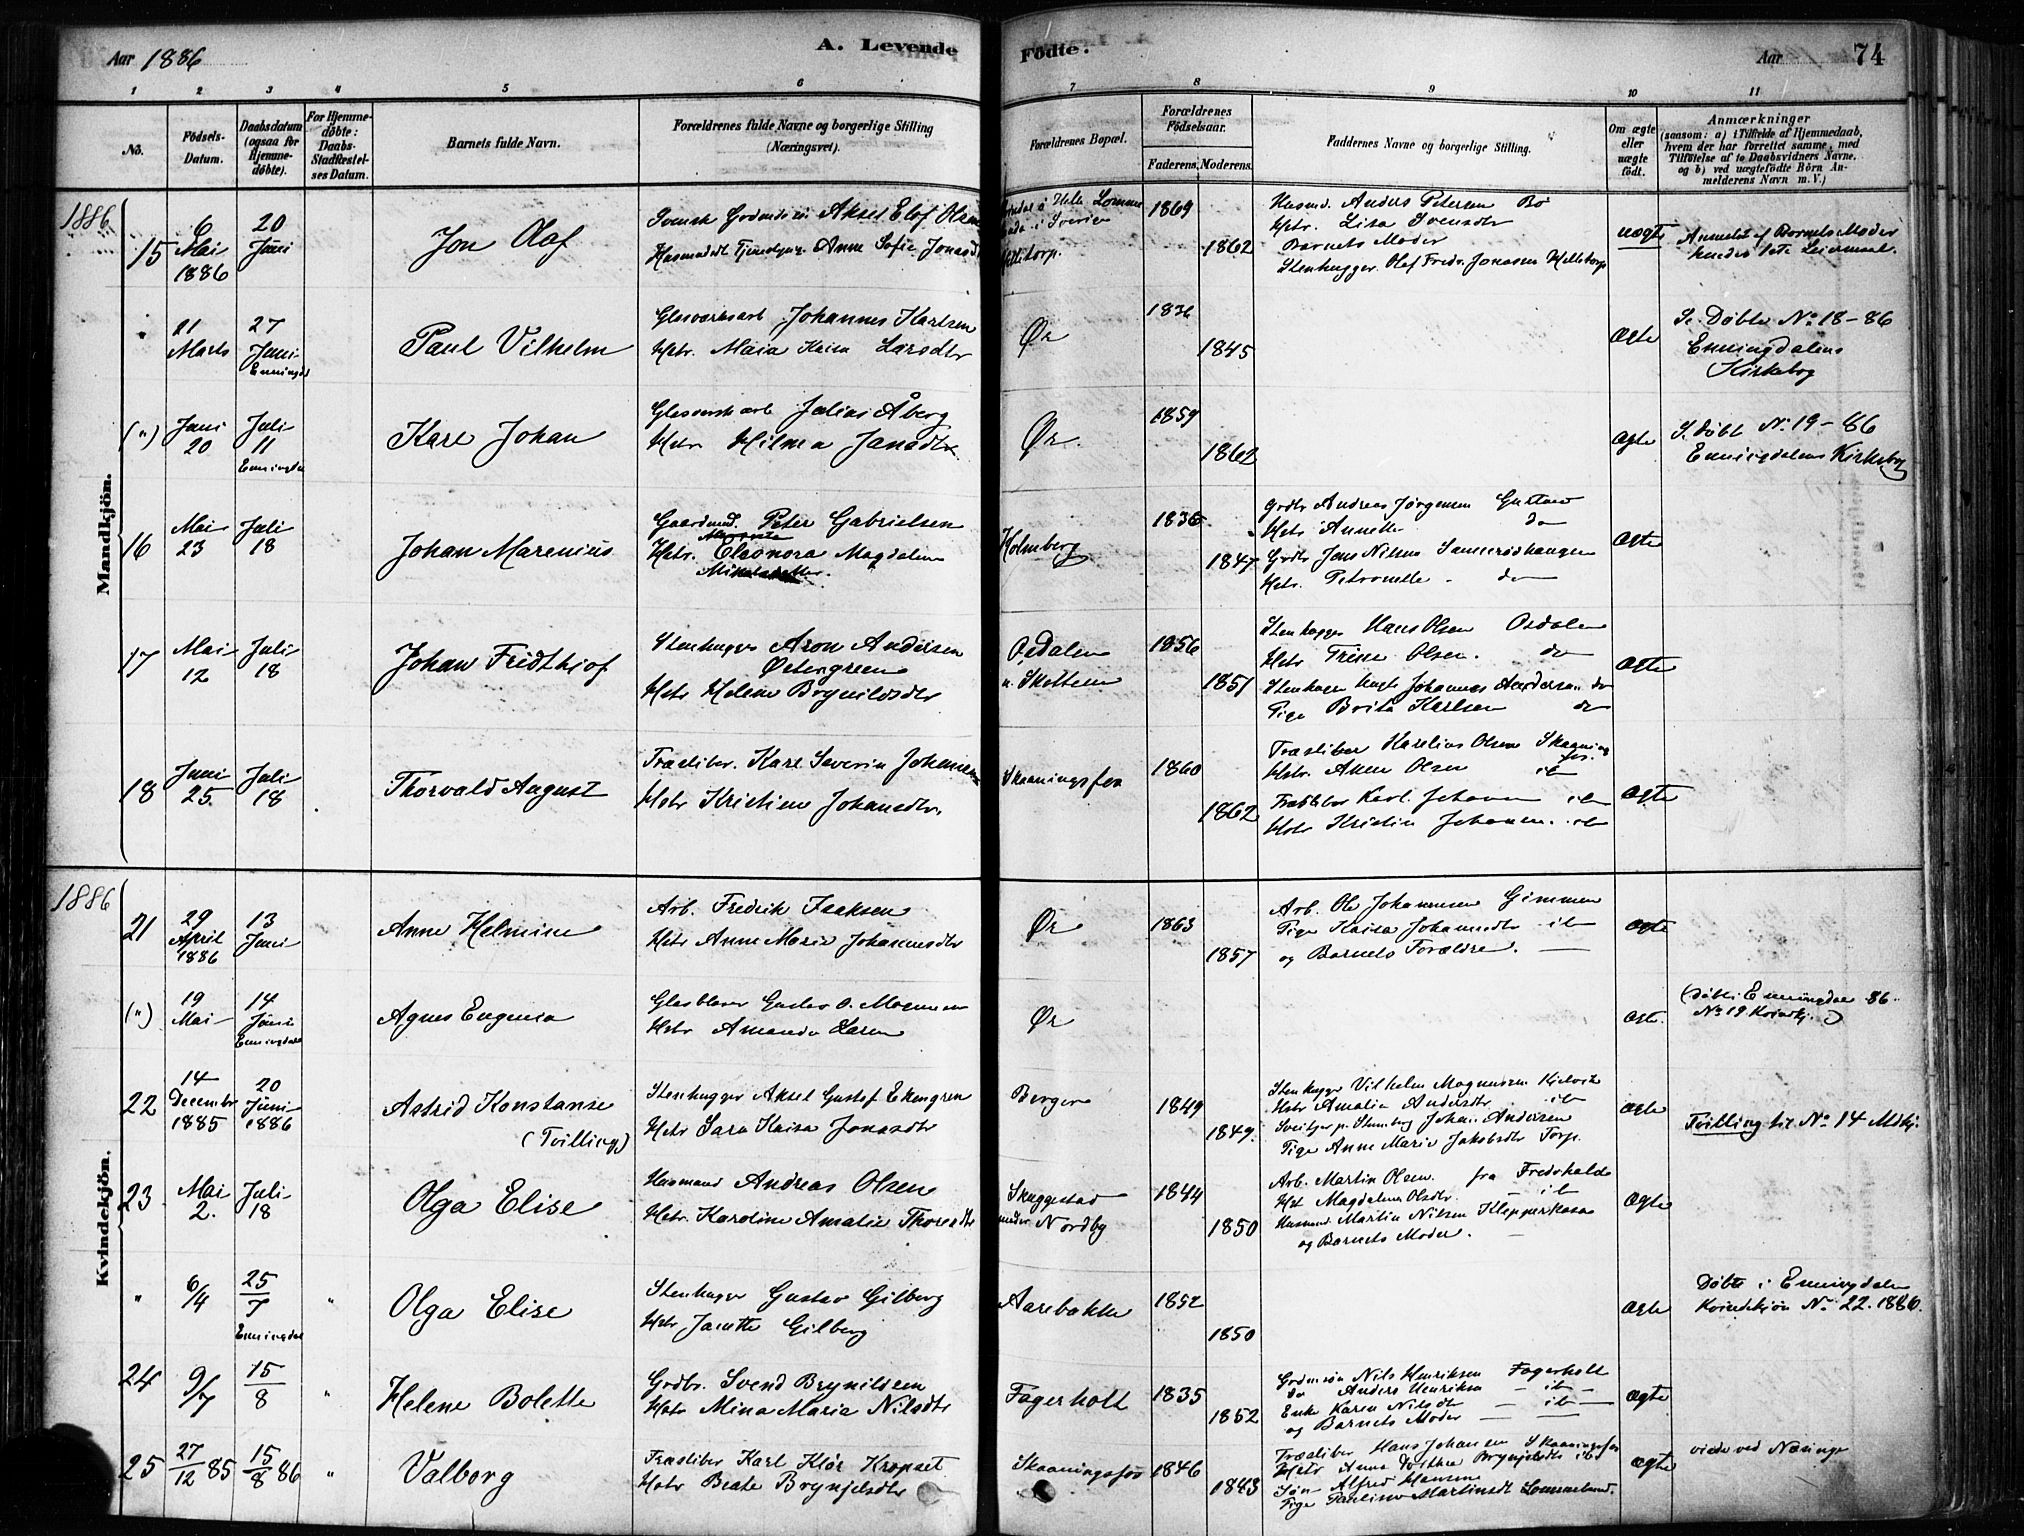 Aar 1886
A. Levende
Fødte.
Aar
74
1 2 3 4 5 6 7 8 9 10 11
No.
Fødsels-
Datum.
Daabsdatum
(ogsaa for
Hjemme-
døbte).
For Hjemme-
døbte:
Daabs-
Stadfæstel-
ses Datum.
Barnets fulde Navn.
Forældrenes fulde Navne og borgerlige Stilling
(Næringsvei).
Forældrenes Bopæl.
Forældrenes
Fødselsaar.
Faderens. Moderens.
Faddernes Navne og borgerlige Stilling.
Om ægte
eller
uægte
født.
Anmærkninger
(saasom: a) i Tilfælde af Hjemmedaab,
hvem der har forrettet samme, med
Tilføielse af to Daabsvidners Navne.
og b) ved uægtefødte Börn An-
melderens Navn m. V.)
Mandkjön.
1886
15
6
Mai
1886
20
Juni
Jon Olaf
Svensk Aksel Elof Olsen
Anne Sofie
i Sverige
1869
1862
Husmd. Anders Petersen Bø
Hstr. Lisa Svensdtr
Barnets Moder
Stenhugger Olaf Fredr. Jonasen
uægte
Anmeldt af Barnets Moder
hendes 1ste Leiermaal.
21
Marts
27
Juni
Enningd
Paul Vilhelm
Glasværksarb Johannes Karlsen
Hstr. Maia Kaisa Larsdtr
Ør
1836
1845
ægte
Se Døbte No 18-86
Enningdalens
Kirkebog
(")
Juni
20
Juli
11
Enningdal
Karl Johan
Glasværksarb Julius Åberg
Hstr Hilma Jansdtr
Ør.
1859
1862
ægte
S. døbt No 19-86
Enningdalens Kirkebog
16
Mai
23
Juli
18
Johan Marenius
Gaardmd. Peter Gabrielsen
Hstr. Eleonora Magdalena
Holmberg
1836
1847
Grdbr Andreas Jørgensen
Hstr Annette do
Grdbr Jens Nilsen
Hstr. Petronelle do
ægte
17
Mai
12
Juli
18
Johan Fridthjof
Stenhugger Aron Andersen
Østergreen
Hstr Helene Brynildsdtr
1856
1851
Stenhugger Hans Olsen
Hstr Trine Olsen. do
Johannes Andersen do
Pige Brita Karlsen do
ægte
18
Juni
25.
Juli
18
Thorvald August
Træsliber. Karl Severin Johansen
Hstr Kristine Johansdtr.
Skaaningsfos
1860
1862
Træsliber Karelius Olsen Skaanings
fos.
Hstr. Olsen ib
Træsliber Karl Johansen ib
Hstr Kristin Johansen. ib
ægte
Kvindekjön.
1886
21
29
April
1886
13
Juni
Anne Helmine
Arb. Fredrik Isaksen
Hstr Anne Maria Johannesdtr
Ør
1863
1857
Arb. Ole Johannesen Gimmen
Pige Kaisa Johannesdtr ib
og Barnets Forældre.
ægte
(")
19
Mai
14
Juni
Enningdalen
Agnes Eugenia
Glasblæser Gustav
Hstr Amanda
Ør
ægte.
(Døbt i Enningdal 86
No 19 Kvindkj.)
22
14
Decembr
1885
20
Juni
1886
Astrid Konstanse
(Tvilling)
Stenhugger Aksel Gustaf Ekengren
Hstr Sara Kaisa Jonasdtr
Berger
1849
1849.
Stenhugger Vilhelm Magnusen
Hstr Amalia Andersdtr ib
Johan Andersen
Pige Anne Marie Jakobsdtr Torp.
ægte
Tvilling til No 14 Mdkj.
23
Mai
2.
Juli
18
Olga Elise
Husmand Andreas Olsen
Hstr. Karoline Amalie Thoresdtr
Skuggestad
under Nordby
1844
1850
Arb. Martin Olsen. fra Fredrhald
Hst Magdalena Olsdtr. ib
Husmd. Martin Nilsen Klepperkasa
og Barnets Moder.
ægte
"
6/4
25/7
Enningdal
"
Olga Elise
Stenhugger Gustav Gilberg
Hstr Janette Gilberg
Aarebakke
1852
1850
ægte
Døbte i Enningdalen
Kvindekjøn No 22. 1886.
24
9/7
15/8
"
Helene Bolette
Grdbr. Svend Brynildsen
Hstr Mina Maria Nilsdtr
Fagerholt
1835
1852
Grdmsøn Nils Henriksen Fagerholt
do Anders Henriksen ib
Enke Karen Nilsdtr ib
og Barnets Moder
ægte
25
27/12 85
15/8 86
"
Valborg
Træsliber Karl Klør Kropset
Hstr Beate Brynjelsdtr
Skaaningsfos
1846
1843
Træsliber Hans Johansen Skaaningsfos
Hstr Anne Dorthea Brynjelsdtr ibd
Søn Alfred Hansen
Pige Pauline Martinsdt
ægte